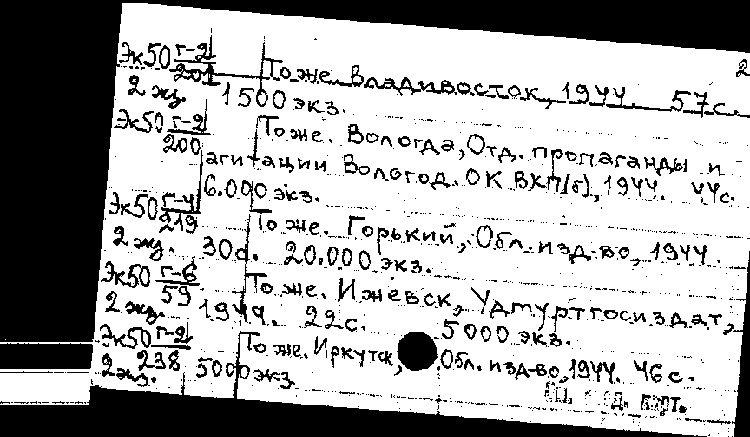 2
Эк50 г-2/201 То же. Владивосток, 1944. 57с.
2 экз. 1500 экз.
Эк50 г-2/200 То же. Вологда, Отд. пропаганды и
агитации Вологод. ОК ВКП(б), 1944. 44с.
6.000 экз.
Эк50 г-4/219 То же. Горький, Обл. изд-во, 1944.
2 экз. 30с. 20.000 экз.
Эк50 г-6/59 То же. Ижевск, Удмуртгосиздат,
2 экз. 1944. 22с. 5000 экз.
Эк50 г-2/238 То же. Иркутск, Обл. изд-во, 1944. 46с.
2 экз. 5000 экз.